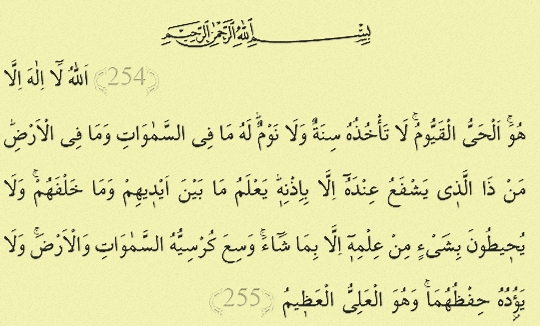 بِسْمِ اللّٰهِ الرَّحْمٰنِ الرَّحِيمِ
﴿254﴾ اَللّٰهُ لَٓا اِلٰهَ اِلَّا
هُوَۚ اَلْحَىُّ الْقَيُّومُۚ لَا تَأْخُذُهُ سِنَةٌ وَلَا نَوْمٌۜ لَهُ مَا فِى السَّمٰوَاتِ وَمَا فِى الْاَرْضِۜ
مَنْ ذَا الَّذٖى يَشْفَعُ عِنْدَهُٓ اِلَّا بِاِذْنِهٖۜ يَعْلَمُ مَا بَيْنَ اَيْدٖيهِمْ وَمَا خَلْفَهُمْۚ وَلَا
يُحٖيطُونَ بِشَىْءٍ مِنْ عِلْمِهٖٓ اِلَّا بِمَا شَٓاءَۚ وَسِعَ كُرْسِيُّهُ السَّمٰوَاتِ وَالْاَرْضَۚ وَلَا
يَؤُدُهُ حِفْظُهُمَاۚ وَهُوَ الْعَلِىُّ الْعَظٖيمُ ﴿255﴾